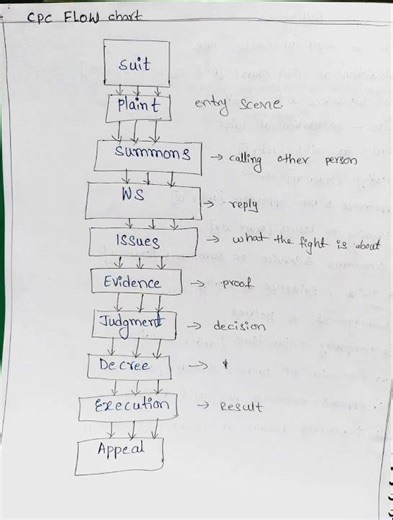 CPC FLOW chart
Suit
Plaint entry scene
Summons → calling other person
WS → reply
Issues → what the fight is about
Evidence → proof
Judgment → decision
Decree →
Execution → Result
Appeal